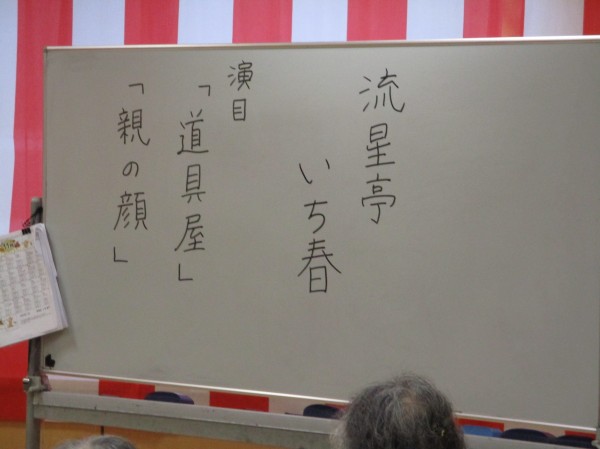 流星亭
いち春
演目
「道具屋」
「親の顔」